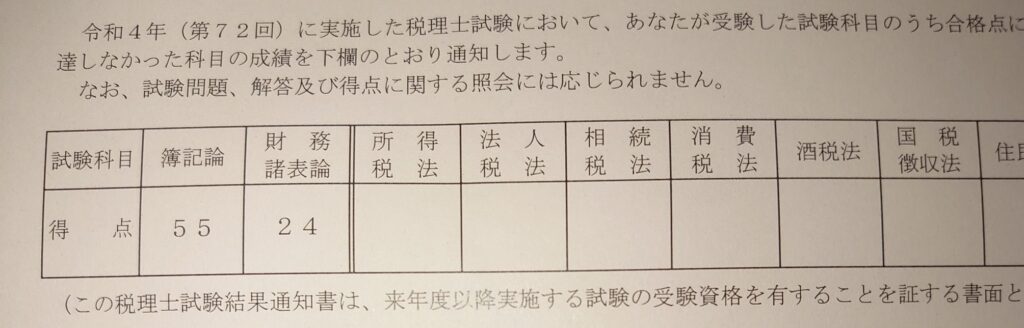 令和４年（第７２回）に実施した税理士試験において、あなたが受験した試験科目のうち合格点に
達しなかった科目の成績を下欄のとおり通知します。
なお、試験問題、解答及び得点に関する照会には応じられません。
試験科目 簿記論 財務諸表論 所得税法 法人税法 相続税法 消費税法 酒税法 国税徴収法 住民
得点 ５５ ２４
（この税理士試験結果通知書は、来年度以降実施する試験の受験資格を有することを証する書面と